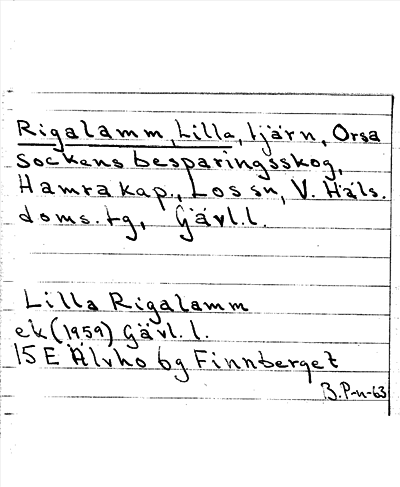 Rigalamm, Lilla, tjärn, Orsa
Sockens besparingsskog,
Hamra kap., Los sn, V. Häls.
doms.tg, Gävl.l.
Lilla Rigalamm
ek (1959) Gävl.l.
15E Älvho 6g Finnberget
B.P-n-63